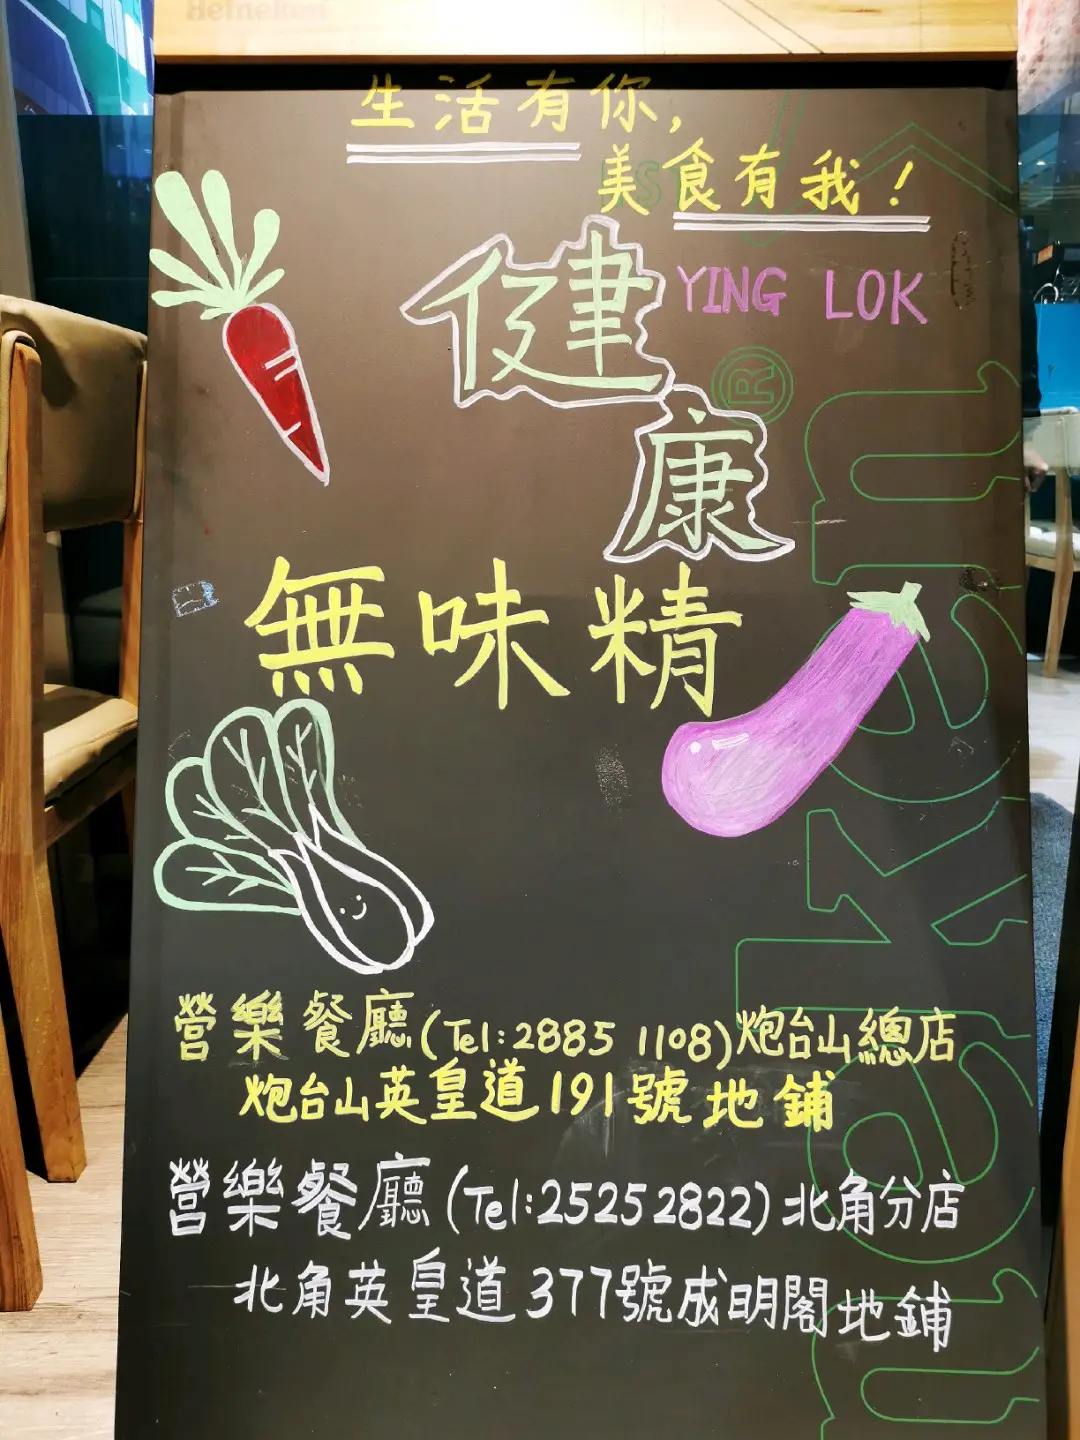 Heineken
生活有你，
美食有我！
YING LOK
健
康
無味精
營樂餐廳(Tel:2885 1108)炮台山總店
炮台山英皇道191號地鋪
營樂餐廳(Tel:25252822)北角分店
北角英皇道377號成明閣地鋪
Heineken®